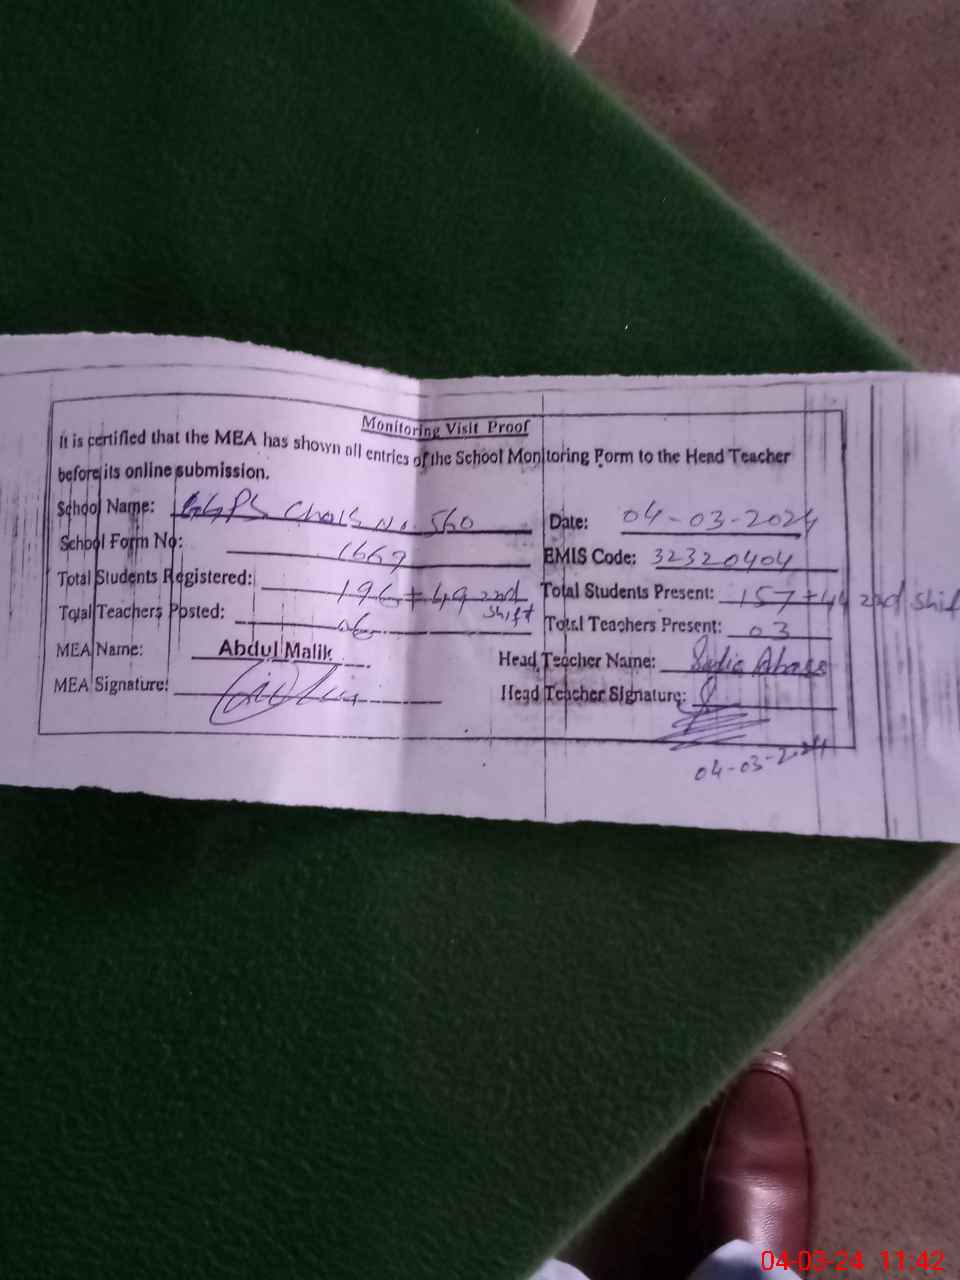 Monitoring Visit Proof
It is certified that the MEA has shown all entries of the School Monitoring Form to the Head Teacher
before its online submission.
School Name: GGPS Chak No. 560
Date: 04-03-2024
School Form No: 1669
EMIS Code: 32320404
Total Students Registered: 196+49 2nd shift
Total Students Present: 157+44 2nd shift
Total Teachers Posted: 06
Total Teachers Present: 03
MEA Name: Abdul Malik
Head Teacher Name:
MEA Signature:
Head Teacher Signature:
04-03-2024
04-03-24 11:42